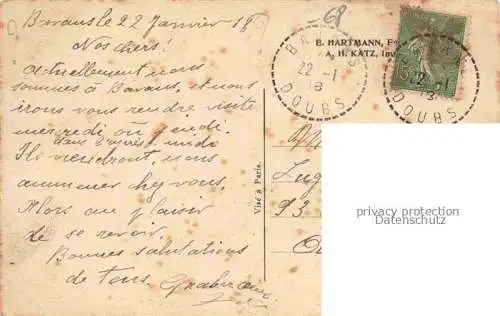 Bavans le 22 Janvier 18
Nos chers!
Actuellement nous
sommes à Bavans, et nous
irons vous rendre visite
mercredi ou jeudi
dans l'après midi
Ils viendront, nous
ammener chez vous.
Alors au plaisir
de se revoir.
Bonnes salutations
de tous.
68
E. HARTMANN,
A. H. KATZ,
BAVANS
22 -1
18
DOUBS
22 -1
18
DOUBS
15
Visé à Paris.
93
privacy protection
www.oldthing.de